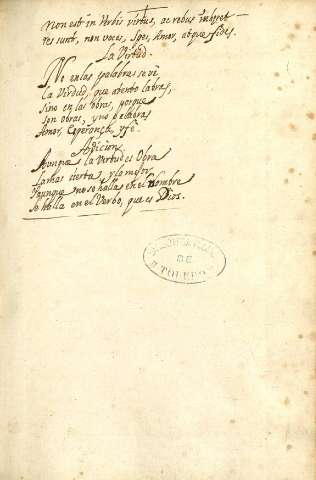 Non est in Verbis virtus, ac rebus inhæret
res sunt, non voces, spes, Amor, atque fides.
La Virtud.
No en las palabras se vé
la Virtud, que atento labras,
sino en las obras, porque
son obras, y no palabras
Amor, Esperança, y fé.
Adicion
Aunque la virtud es Obra
la mas cierta, y la mejor
Y aunque no se halla en el Nombre
Se halla en el Verbo, que es Dios.
DE
TOLEDO